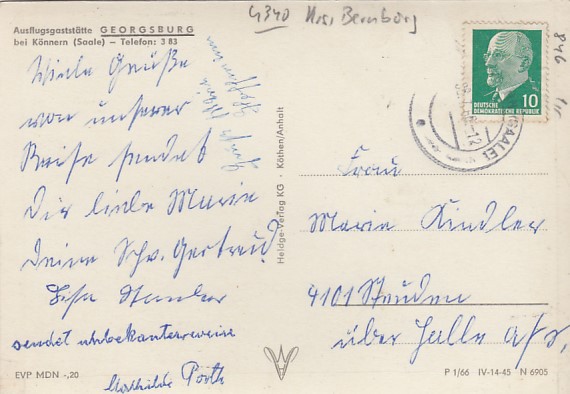 4340 Krs. Bernburg
Ausflugsgaststätte GEORGSBURG
bei Könnern (Saale) – Telefon: 3 83
Viele Grüße
von unserer
Reise sendet
Dir liebe Marie
Deine Schw. Gertrud
sendet unbekannterweise
Mathilde Poeth
EVP MDN -,20
Heldge-Verlag KG · Köthen/Anhalt
DEUTSCHE
DEMOKRATISCHE REPUBLIK
10
(SAALE)
Frau
Marie Kindler
4101 Steuden
über Halle a/S.
P 1/66 IV-14-45 N 6905
846